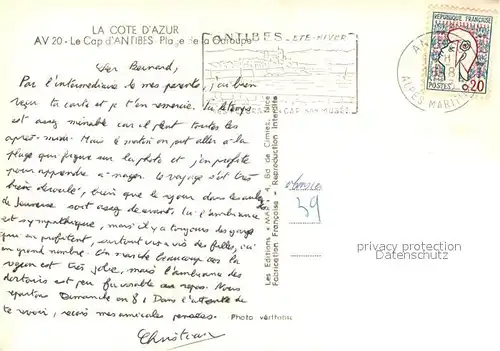 LA COTE D'AZUR
AV 20 - Le Cap d'ANTIBES Plage de la Garoupe
ANTIBES
ÉTÉ-HIVER
REPUBLIQUE FRANÇAISE
POSTES
0,20
ALPES MARIT
Bernard,
Par l'intermédiaire de mes parents, j'ai bien
reçu ta carte et je t'en remercie. Le temps
est assez minable car il pleut toutes les
après-midi. Mais le matin on peut aller à la
plage qui figure sur la photo et j'en profite
pour apprendre à nager. Le voyage s'est très
bien déroulé, bien que le séjour dans les
de jeunesse soit assez L'ambiance
est sympathique, mais il y a toujours des gars
qui en profitent, surtout vis à vis des filles,
en grand nombre. On marche beaucoup car la
région est très jolie, mais l'ambiance des
dortoirs est peu favorable au repos. Nous
repartons Dimanche Dans l'attente de
te revoir, reçois mes amicales pensées.
Christian
Photo véritable
Les Editions « MAR » 4, Bd de Cimiez, Nice
Fabrication Française - Reproduction Interdite
39
privacy protection
Datenschutz